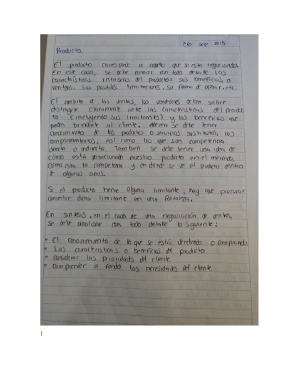 Producto
El producto corresponde al objeto que se está negociando.
En este caso, se debe conocer en todo detalle las
características intrínsecas del producto, sus beneficios o
ventajas, sus posibles limitaciones, su forma de
El ámbito de las ventas, los vendedores deben saber
distinguir claramente entre las características del produc
to (incluyendo sus limitantes) y los beneficios que
puede brindarle al cliente. Además se debe tener
conocimiento de los productos o servicios sustitutos, los
complementarios, así como los que son competencia
directa o indirecta. También se debe tener una idea de
cómo está posicionado nuestro producto en el mercado,
como está la competencia y en dónde se ve el producto dentro
de algunos años.
Si el producto tiene alguna limitante, hay que procurar
convertir dicha limitante en una fortaleza.
En síntesis, en el caso de una negociación de ventas,
se debe con todo detalle lo siguiente:
• El conocimiento de lo que se está vendiendo o comprando
• Las características o beneficios del producto
• las prioridades del cliente
• Comprender a fondo las necesidades del cliente